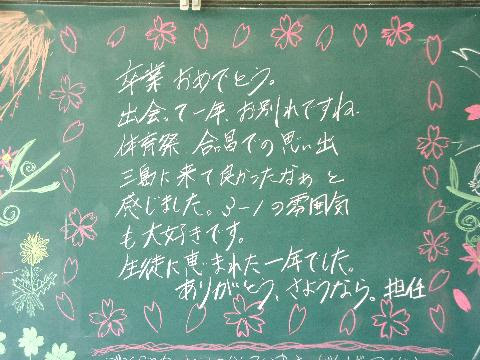 卒業おめでとう。
出会って一年、お別れですね。
体育祭 合唱での思い出
三島に来て良かったなぁと
感じました。3-1の雰囲気
も大好きです。
生徒に恵まれた一年でした。
ありがとう、さようなら。担任